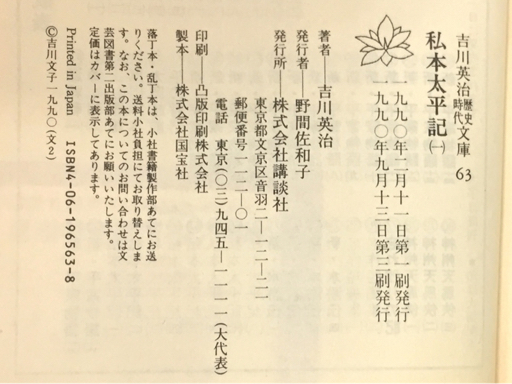 吉川英治歴史時代文庫 63
私本太平記㈠
一九九〇年二月十一日第一刷発行
一九九〇年九月十三日第三刷発行
著者――吉川英治
発行者――野間佐和子
発行所 株式会社講談社
東京都文京区音羽二―一二―二一
郵便番号一一二―〇一
電話 東京(〇三)九四五―一一一一(大代表)
印刷 凸版印刷株式会社
製本――株式会社国宝社
落丁本・乱丁本は、小社書籍製作部あてにお送
りください。送料小社負担にてお取り替えしま
す。なお、この本についてのお問い合わせは文
芸図書第二出版部あてにお願いいたします。
定価はカバーに表示してあります。
©吉川文子一九九〇(文2)
Printed in Japan ISBN4-06-196563-8